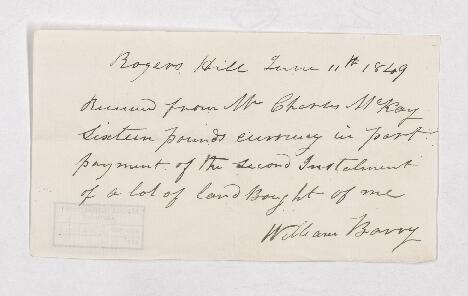 Rogers Hill June 11th 1849
Received from Mr Charles McKay
Sixteen pounds currency in part
payment of the Second Instalment
of a lot of land Bought of me
William Barry